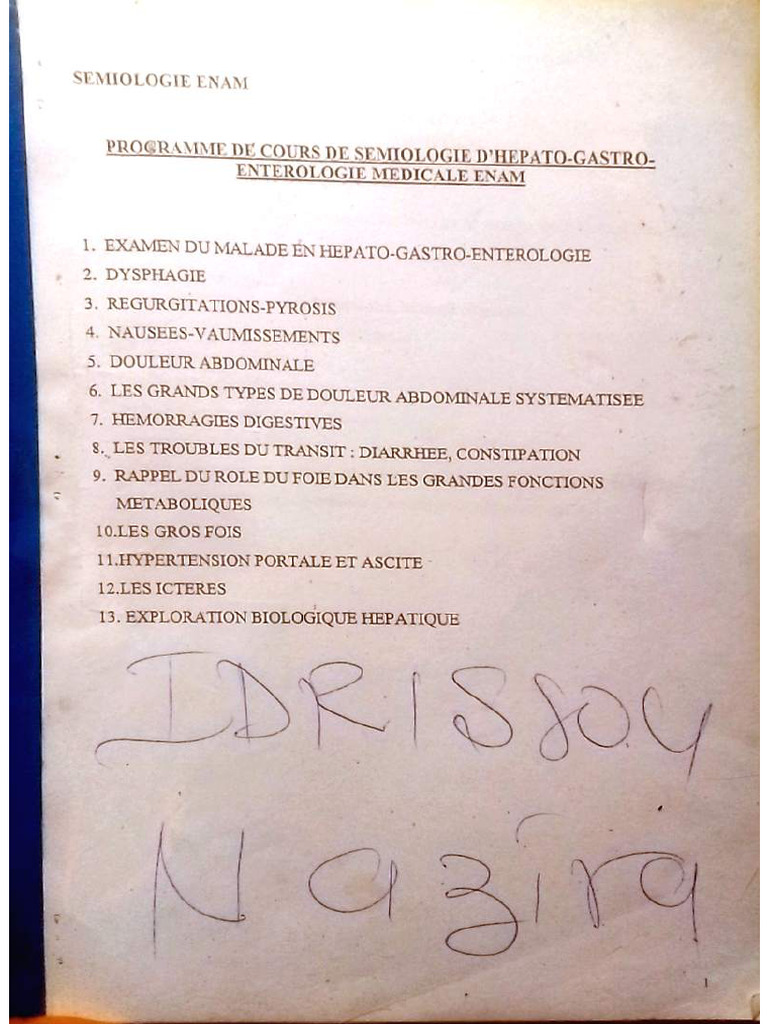 SEMIOLOGIE ENAM
PROGRAMME DE COURS DE SEMIOLOGIE D'HEPATO-GASTRO-
ENTEROLOGIE MEDICALE ENAM
1. EXAMEN DU MALADE EN HEPATO-GASTRO-ENTEROLOGIE
2. DYSPHAGIE
3. REGURGITATIONS-PYROSIS
4. NAUSEES-VAUMISSEMENTS
5. DOULEUR ABDOMINALE
6. LES GRANDS TYPES DE DOULEUR ABDOMINALE SYSTEMATISEE
7. HEMORRAGIES DIGESTIVES
8. LES TROUBLES DU TRANSIT : DIARRHEE, CONSTIPATION
9. RAPPEL DU ROLE DU FOIE DANS LES GRANDES FONCTIONS
METABOLIQUES
10.LES GROS FOIS
11.HYPERTENSION PORTALE ET ASCITE
12.LES ICTERES
13. EXPLORATION BIOLOGIQUE HEPATIQUE
IDRISSOU
Nazira
1